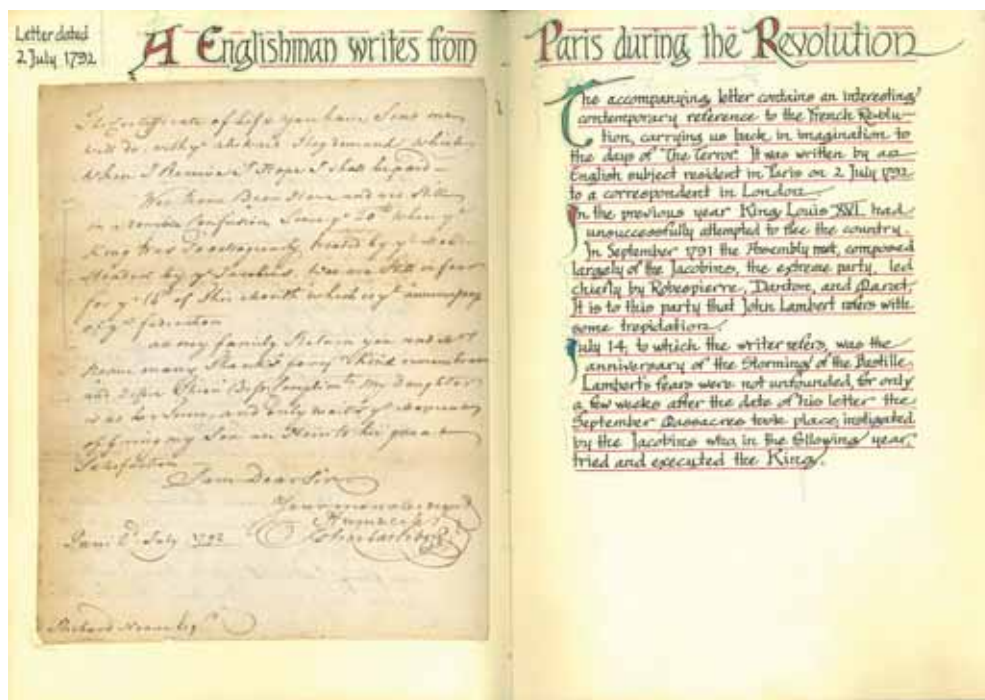 Letter dated
2 July 1792
A Englishman writes from Paris during the Revolution
The Certificate of Life you have Sent me
will do, with
when I Receive I Hope I shall be paid
We have Been Here and are Still
in a Horrible Confusion Since ye 20th when ye
King Was
by ye Jacobins, We are Still in fear
for ye 14th of this Month which is ye
of ye federation
my family Return you and
many Thanks for
and Desire their Best Complimts My Daughter
is and only waits ye
of giving my Son an Heir to his great
Satisfaction
I am Dear Sir
Your
Humble
John Lambert
Paris 2d July 1792
Richard Esqr
The accompanying letter contains an interesting
contemporary reference to the French Revolu-
tion, carrying us back in imagination to
the days of "The Terror". It was written by an
English subject resident in Paris on 2 July 1792
to a correspondent in London.
In the previous year King Louis XVI had
unsuccessfully attempted to flee the country.
In September 1791 the Assembly met, composed
largely of the Jacobines, the extreme party, led
chiefly by Robespierre, Danton, and Marat.
It is to this party that John Lambert refers with
some trepidation.
July 14, to which the writer refers, was the
anniversary of the Storming of the Bastille
Lambert's fears were not unfounded, for only
a few weeks after the date of his letter the
September Massacres took place, instigated
by the Jacobines who in the following year,
tried and executed the King.